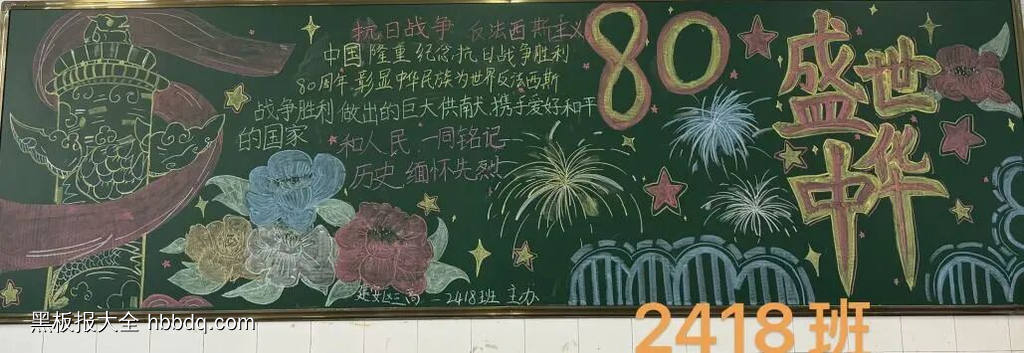 抗日战争 反法西斯主义
中国隆重纪念抗日战争胜利
80周年,彰显中华民族为世界反法西斯
战争胜利做出的巨大供南犬,携手爱好和平
的国家
和人民,一同铭记
历史,缅怀先烈
80
盛世
中华
延安区二高一2418班 主办
2418班
黑板报大全 hbbdq.com